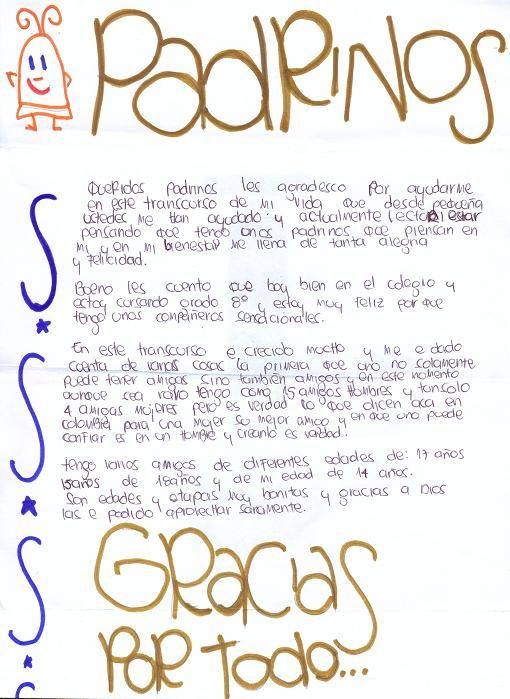 PadRiNOS
Queridos padrinos les agradesco por ayudarme
en este transcurso de mi vida que desde pequeña
ustedes me han ayudado y actualmente estar
pensando que tengo unos padrinos que piensan en
mi y en mi bienestar me llena de tanta alegria
y felicidad.
Bueno les cuento que boy bien en el colegio y
estoy cursando grado 8° y estoy muy feliz por que
tengo unos compañeros sensacionales.
En este transcurso e crecido mucho y me e dado
cuenta de varias cosas la primera que uno no solamente
puede tener amigas sino tambien amigos y en este momento
aunque sea raro tengo como 15 amigos hombres y tan solo
4 amigas mujeres pero es verdad lo que dicen aca en
colombia para una mujer su mejor amigo y en que uno puede
confiar es en un hombre y creanlo es verdad!
tengo varios amigos de diferentes edades de: 17 años
15años de 18años y de mi edad de 14 años.
Son edades y etapas muy bonitas y gracias a Dios
las e podido aprovechar sanamente.
GRacias
poR todo...